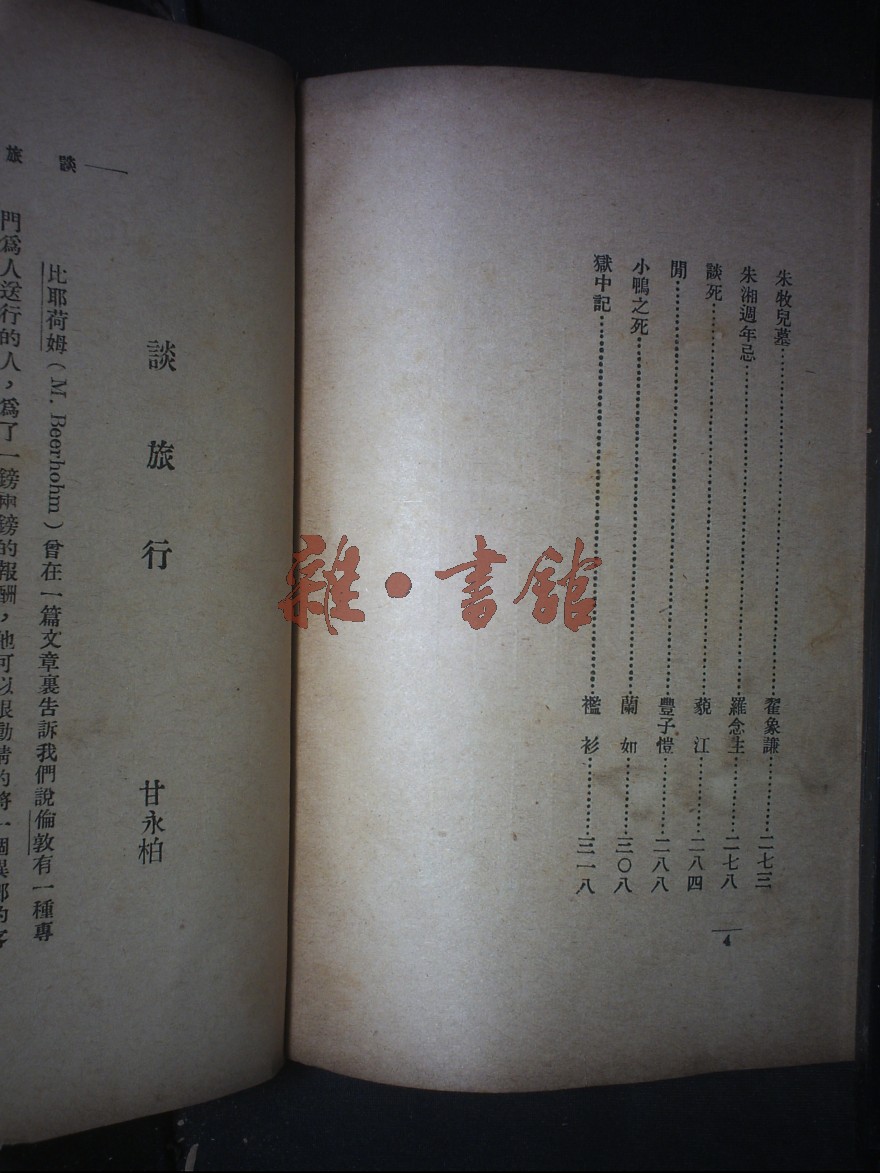 朱牧兒墓……翟象謙……二七三
朱湘週年忌……羅念生……二七八
談死……藐江……二八四
閒……豐子愷……二八八
小鴨之死……蘭如……三〇八
獄中記……襤衫……三一八
4
談旅
談旅行
甘永柏
比耶荷姆(M. Beerhohm)曾在一篇文章裏告訴我們說倫敦有一種專
門爲人送行的人,爲了一鎊兩鎊的報酬,他可以很動情的將一個異鄉的客
雜·書館